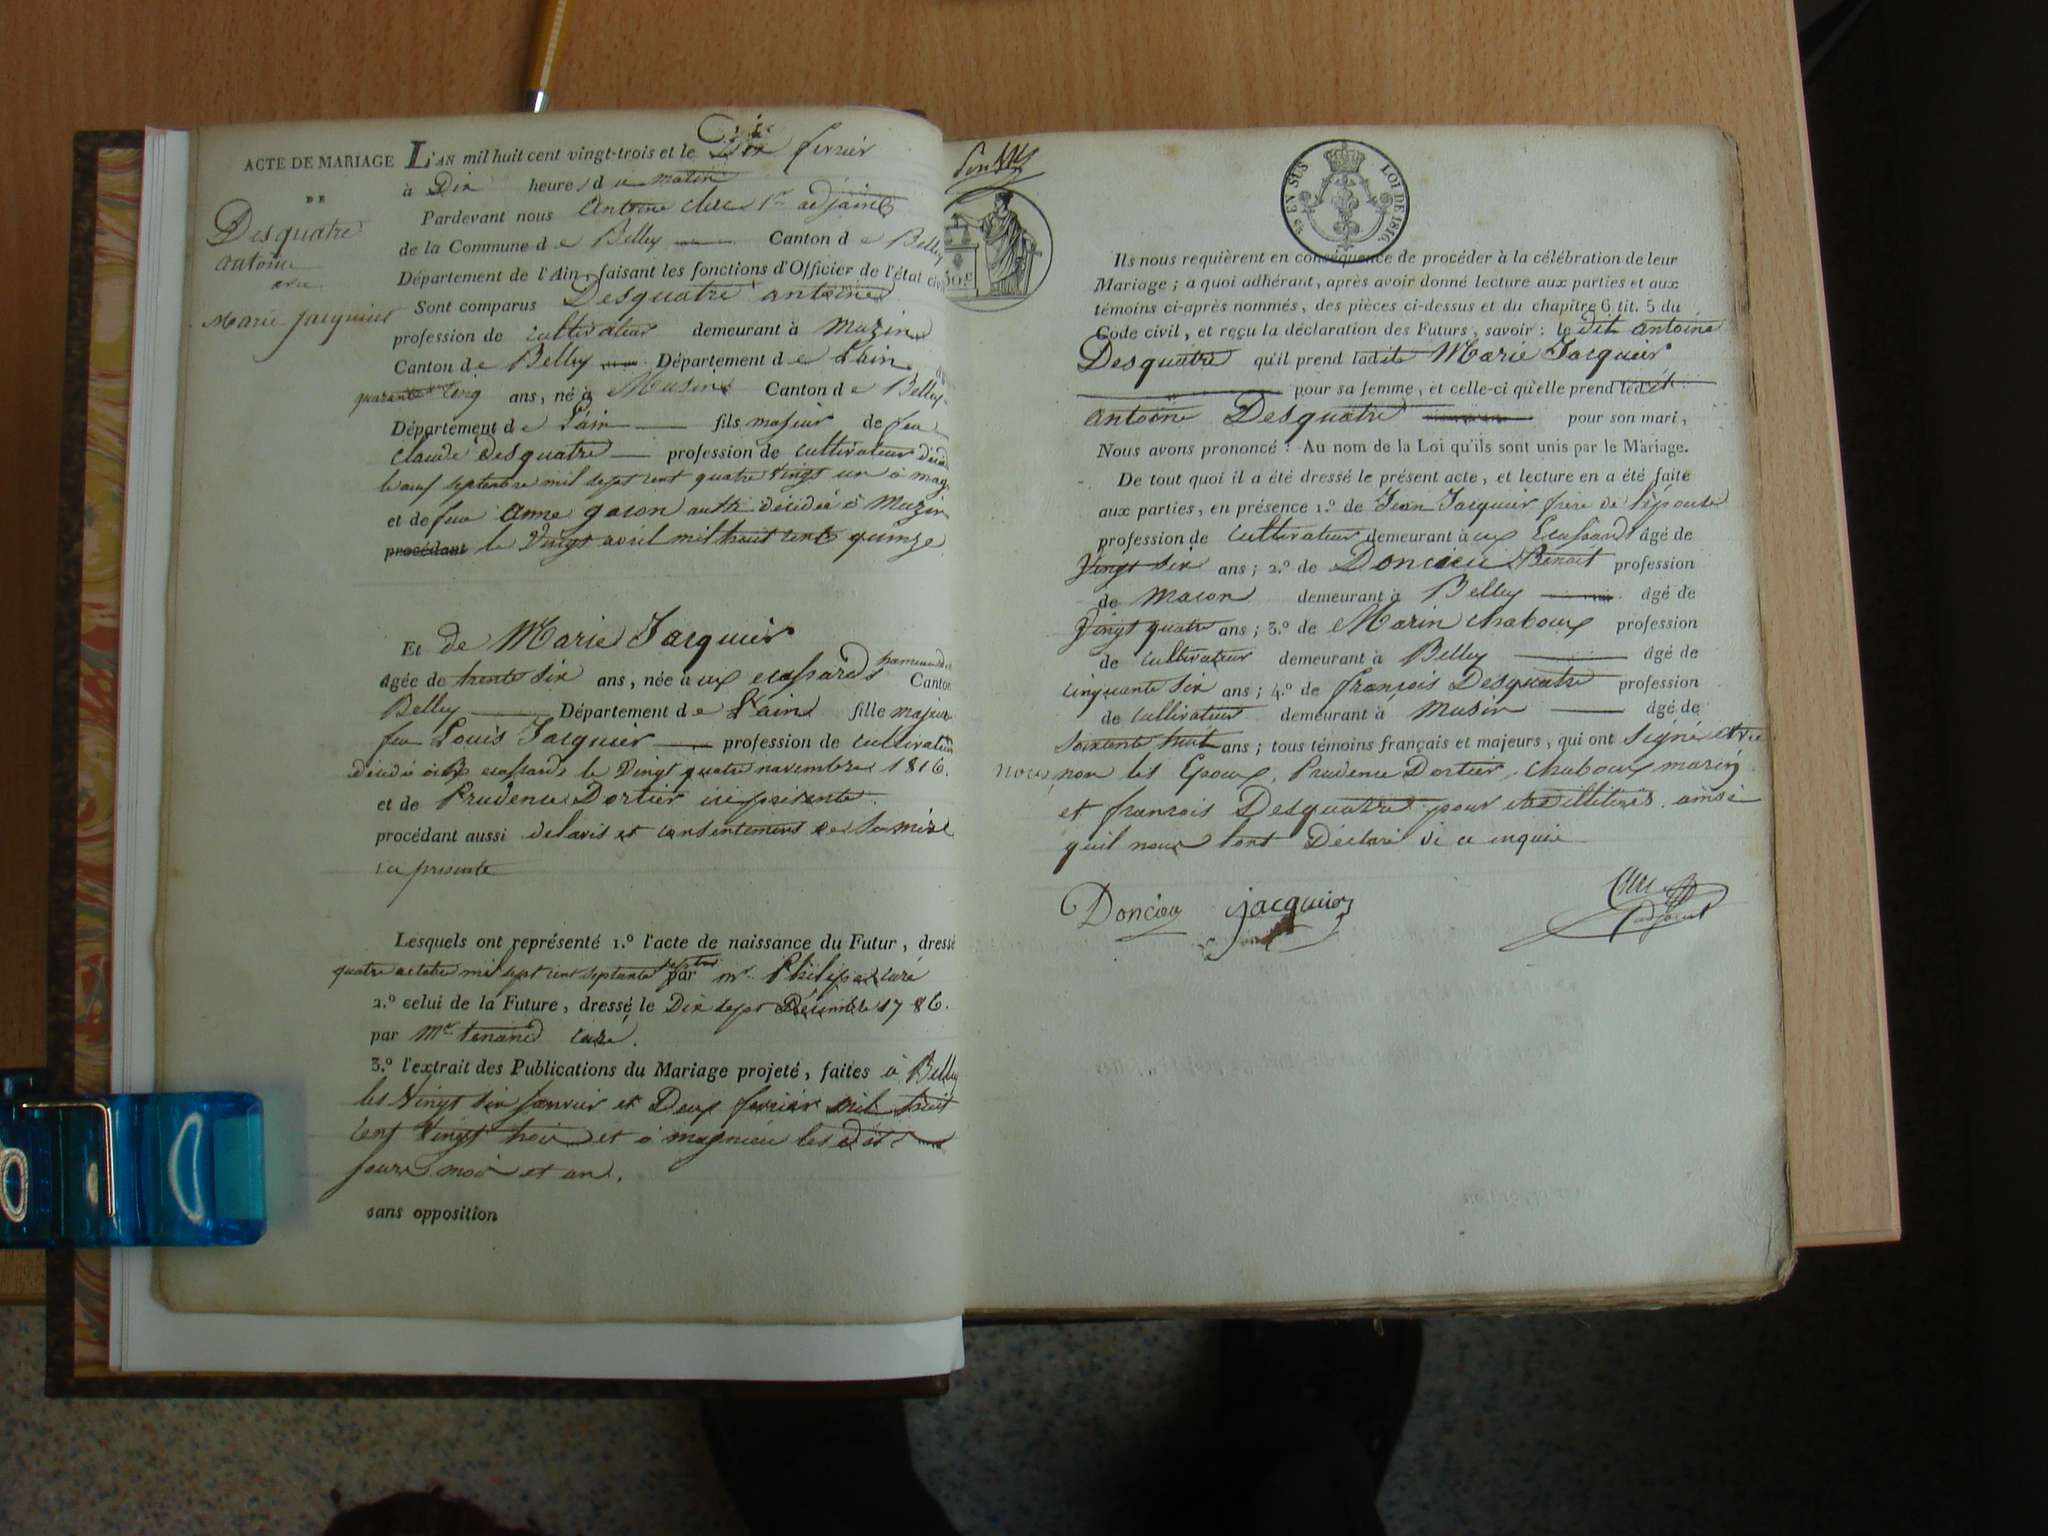 ACTE DE MARIAGE
DE
Desquatre
antoine
avec
Marie Jacquier
L'AN mil huit cent vingt-trois et le Dix fevrier
à Dix heures du matin
Pardevant nous Antoine Clerc 1er adjoint
de la Commune de Belley Canton de Belley
Département de l'Ain, faisant les fonctions d'Officier de l'état civil
Sont comparus Desquatre antoine
profession de cultivateur demeurant à Muzin
Canton de Belley Département de L'ain
quarante cinq ans, né à Musin Canton de Belley
Département de L'ain fils majeur de feu
Claude Desquatre profession de cultivateur décédé
le neuf septembre mil sept cent quatre vingt un à mag
et de feue Anne gacon aussi décédée à Muzin
procédant le Vingt avril mil huit cent quinze
Et de Marie Jacquier
agée de trente six ans, née à aux ecassards hameau de Canton
Belley Département de L'ain fille majeure
feu Louis Jacquier profession de cultivateur
décédé aux ecassards le Vingt quatre novembre 1816.
et de Prudence Dortier ici présente.
procédant aussi de l'avis et consentement de sa mère
ici presente
Lesquels ont représenté 1.º l'acte de naissance du Futur, dressé
quatre octobre mil sept cent septante sept par mr. Philipe curé
2.º celui de la Future, dressé le Dix sept Décembre 1786.
par Mr. tenand curé.
3.º l'extrait des Publications du Mariage projeté, faites à Belley
les Vingt six Janvier et Deux fevrier mil huit
cent Vingt trois et à magnieu les dits
jours mois et an.
sans opposition
50 c
EN SUS
LOI DE 1816
Ils nous requièrent en conséquence de procéder à la célébration de leur
Mariage ; a quoi adhérant, après avoir donné lecture aux parties et aux
témoins ci-après nommés, des pièces ci-dessus et du chapitre 6, tit. 5 du
Code civil, et reçu la déclaration des Futurs, savoir : le dit antoine
Desquatre qu'il prend ladite Marie Jacquier
pour sa femme, et celle-ci qu'elle prend ledit
antoine Desquatre pour son mari,
Nous avons prononcé : Au nom de la Loi qu'ils sont unis par le Mariage.
De tout quoi il a été dressé le présent acte, et lecture en a été faite
aux parties, en présence 1.º de Jean Jacquier frère de l'épouse
profession de cultivateur demeurant à aux Ecassards âgé de
Vingt six ans ; 2.º de Doncieu Benoit profession
de Macon demeurant à Belley âgé de
Vingt quatre ans ; 3.º de Marin chaboux profession
de cultivateur demeurant à Belley âgé de
cinquante six ans ; 4.º de françois Desquatre profession
de cultivateur demeurant à Musin âgé de
soixante huit ans ; tous témoins français et majeurs, qui ont signé avec
nous, non les Epoux, Prudence Dortier, chaboux marin
et francois Desquatre pour etre illiterés ainsi
quil nous l'ont Déclaré de ce enquis
Doncieu Jacquier Clerc
adjoint